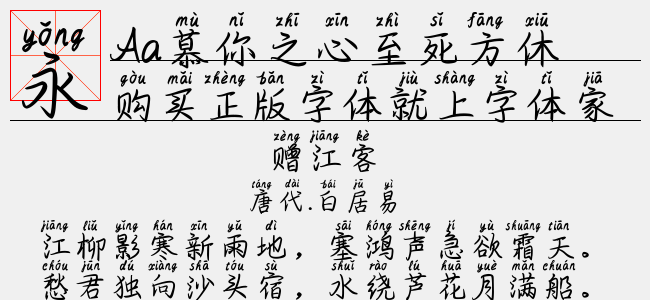 yǒng
永
mù nǐ zhī xīn zhì sǐ fāng xiū
Aa慕你之心至死方休
gòu mǎi zhèng bǎn zì tǐ jiù shàng zì tǐ jiā
购买正版字体就上字体家
zèng jiāng kè
赠江客
táng dài bái jū yì
唐代.白居易
jiāng liǔ yǐng hán xīn yǔ dì sāi hóng shēng jí yù shuāng tiān
江柳影寒新雨地，塞鸿声急欲霜天。
chóu jūn dú xiàng shā tóu sù shuǐ rào lú huā yuè mǎn chuán
愁君独向沙头宿，水绕芦花月满船。